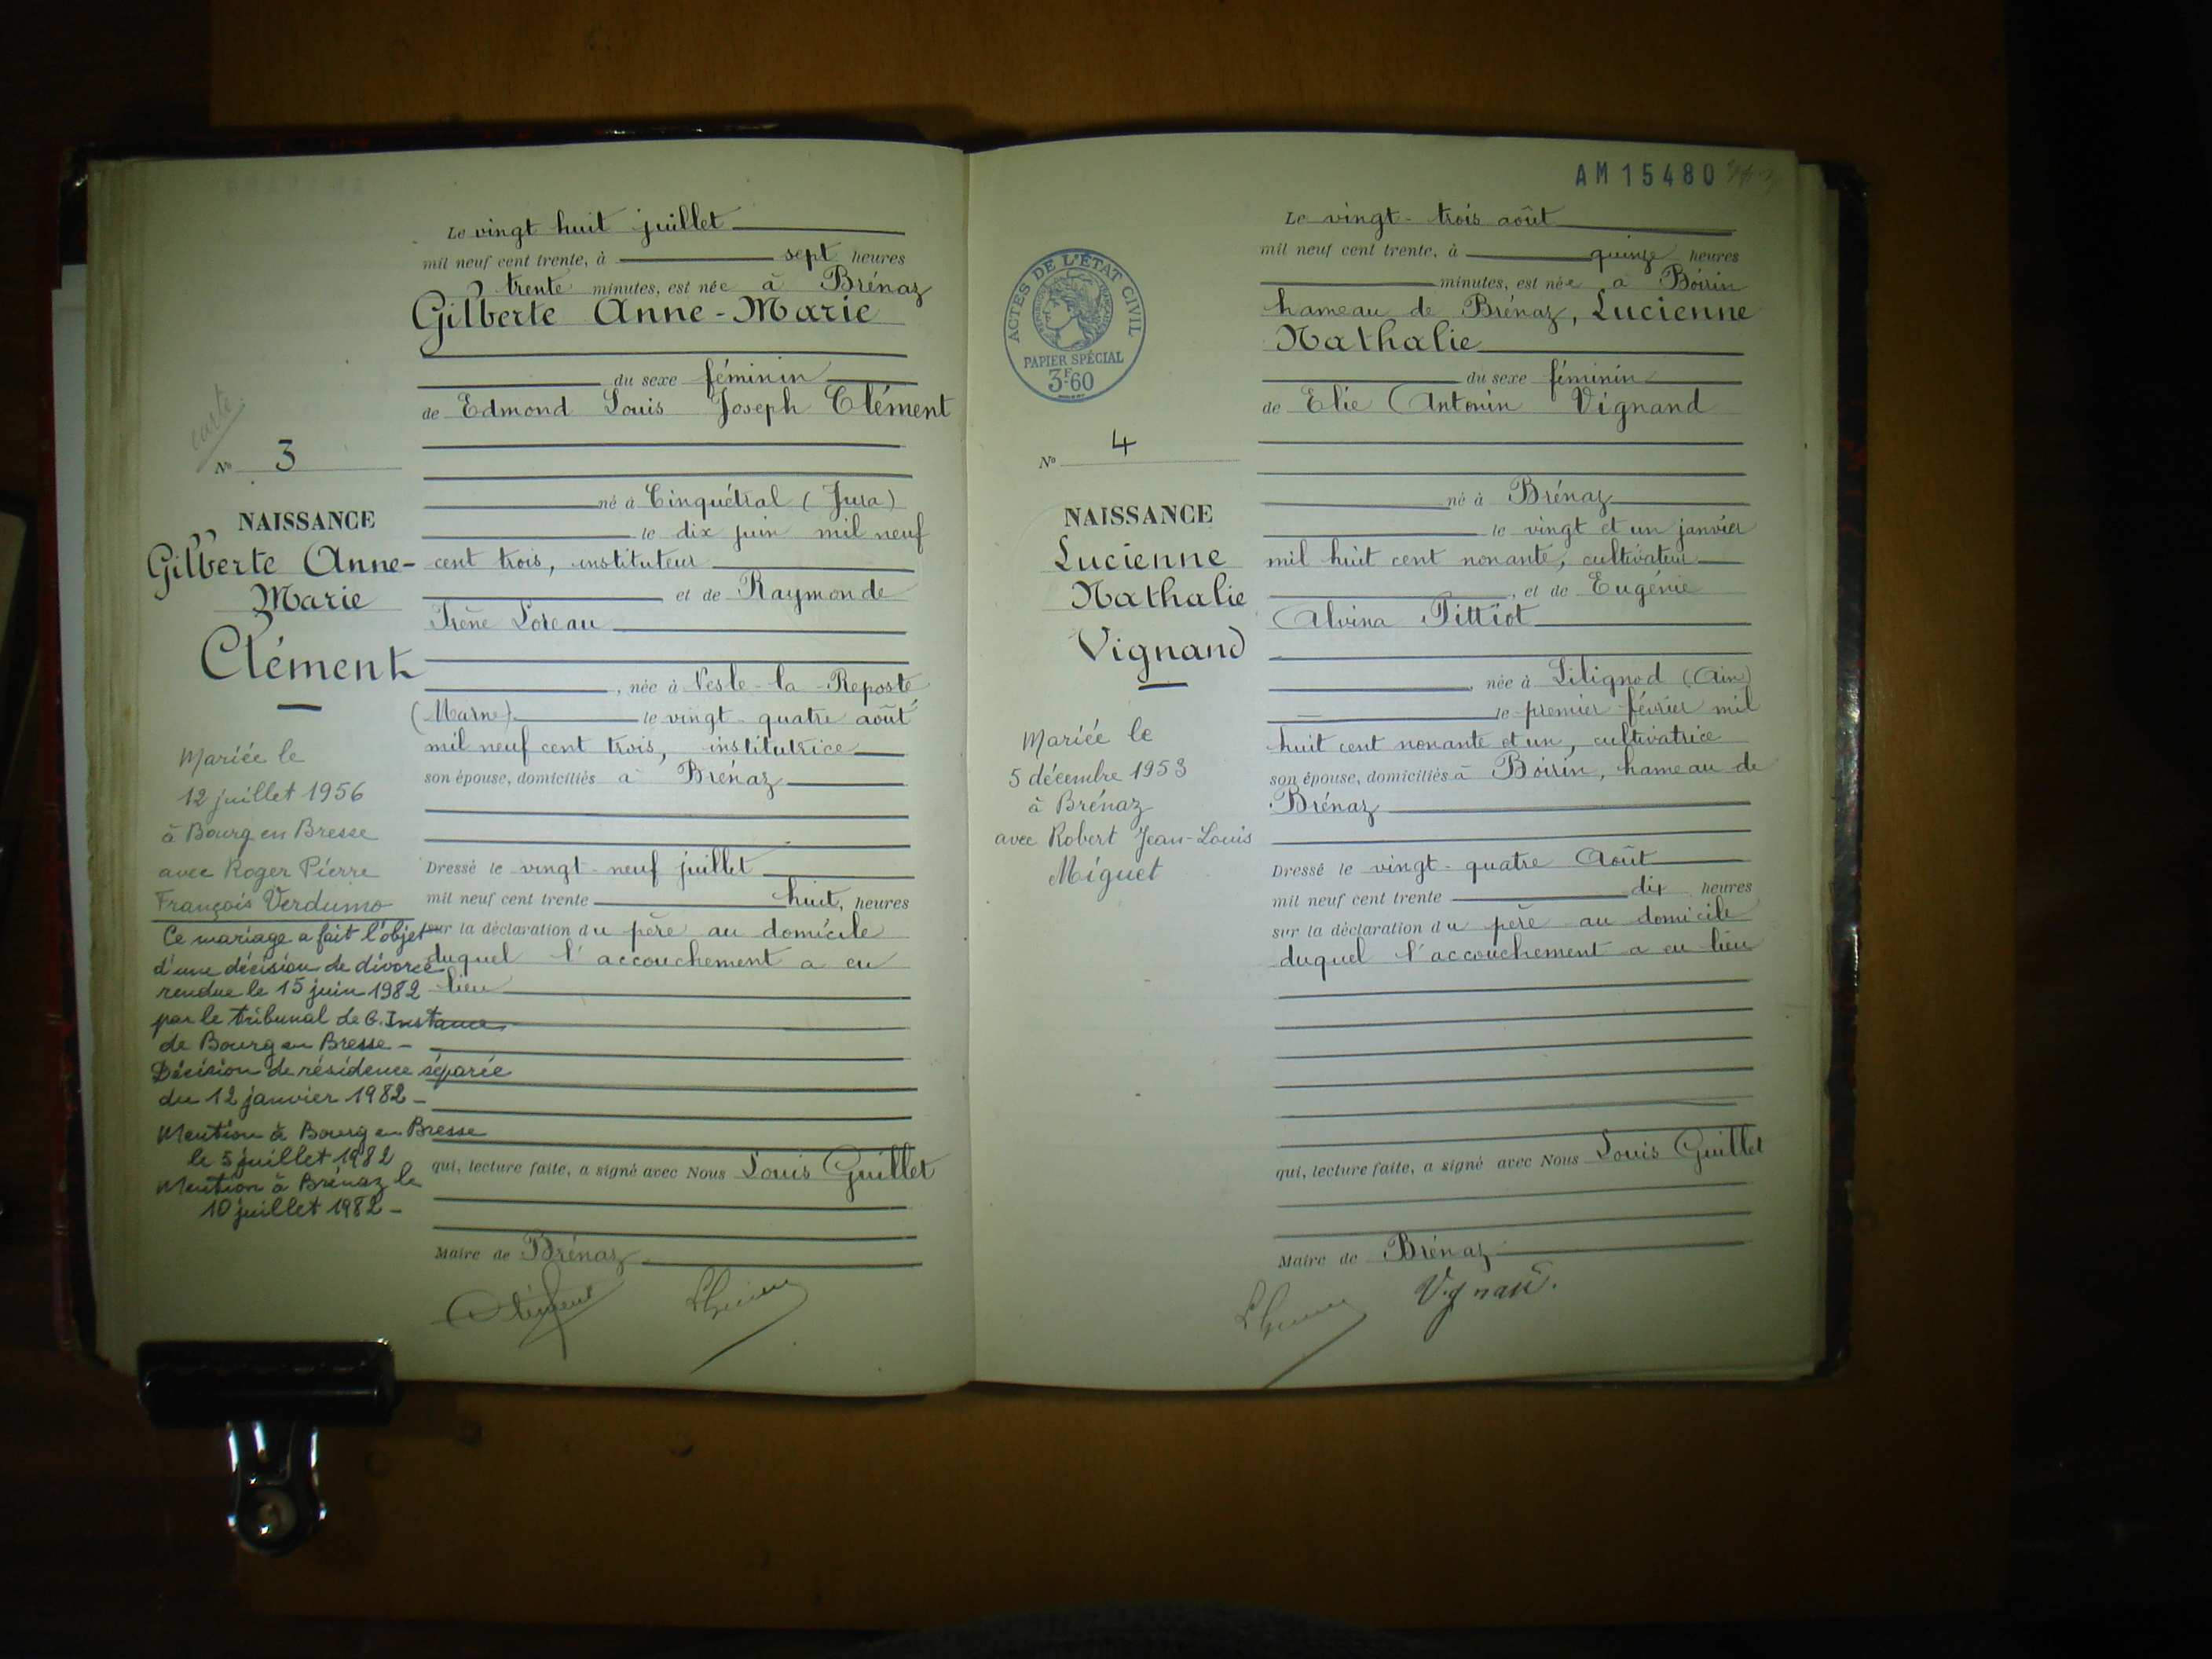 Le vingt huit juillet
mil neuf cent trente, à sept heures
trente minutes, est née à Brénaz
Gilberte Anne-Marie
du sexe féminin
de Edmond Louis Joseph Clément
carte
N° 3
né à Cinquétral (Jura)
NAISSANCE
le dix juin mil neuf
Gilberte Anne-
cent trois, instituteur
Marie
et de Raymonde
Irène Loreau
Clément
née à Nesle-la-Reposte
(Marne) le vingt-quatre août
mil neuf cent trois, institutrice
son épouse, domiciliés à Brénaz
Dressé le vingt-neuf juillet
mil neuf cent trente huit, heures
sur la déclaration du père au domicile
duquel l'accouchement a eu
lieu
qui, lecture faite, a signé avec Nous Louis Guillet
Maire de Brénaz
Clément
Mariée le
12 juillet 1956
à Bourg en Bresse
avec Roger Pierre
François Verdumo
Ce mariage a fait l'objet
d'une décision de divorce
rendue le 15 juin 1982
par le tribunal de G. Instance
de Bourg en Bresse -
Décision de résidence séparée
du 12 janvier 1982 -
Mention à Bourg en Bresse
le 5 juillet 1982
Mention à Brénaz le
10 juillet 1982 -
AM 15480
Le vingt-trois août
mil neuf cent trente, à quinze heures
minutes, est née à Boirin
hameau de Brénaz, Lucienne
Nathalie
du sexe féminin
de Elie Antonin Vignand
ACTES DE L'ÉTAT CIVIL
PAPIER SPÉCIAL
3F60
N° 4
né à Brénaz
NAISSANCE
le vingt et un janvier
Lucienne
mil huit cent nonante, cultivateur
Nathalie
et de Eugénie
Alvina Pittiot
Vignand
née à Lilignod (Ain)
le premier février mil
huit cent nonante et un, cultivatrice
son épouse, domiciliés à Boirin, hameau de
Brénaz
Mariée le
5 décembre 1953
à Brénaz
avec Robert Jean-Louis
Miguet
Dressé le vingt-quatre Août
mil neuf cent trente dix heures
sur la déclaration du père au domicile
duquel l'accouchement a eu lieu
qui, lecture faite, a signé avec Nous Louis Guillet
Maire de Brénaz